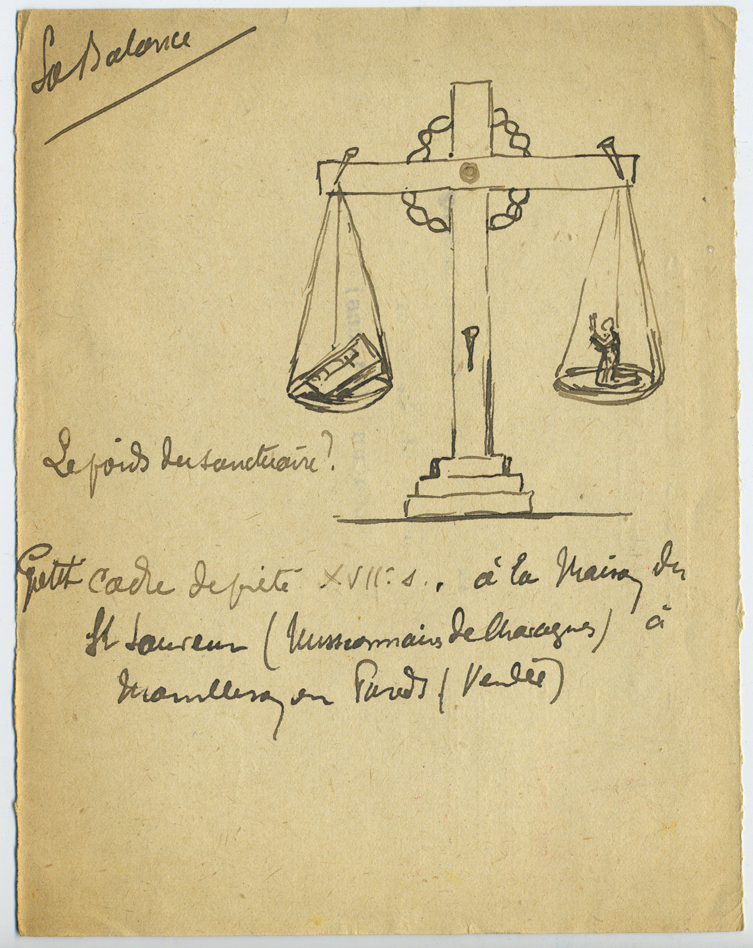 La Balance
Le poids du sanctuaire?
Petit cadre de piété XVII: s., à la Maison du
St Sauveur (Missionnaires de Chavagnes) à
Mouilleron en Pareds (Vendée)